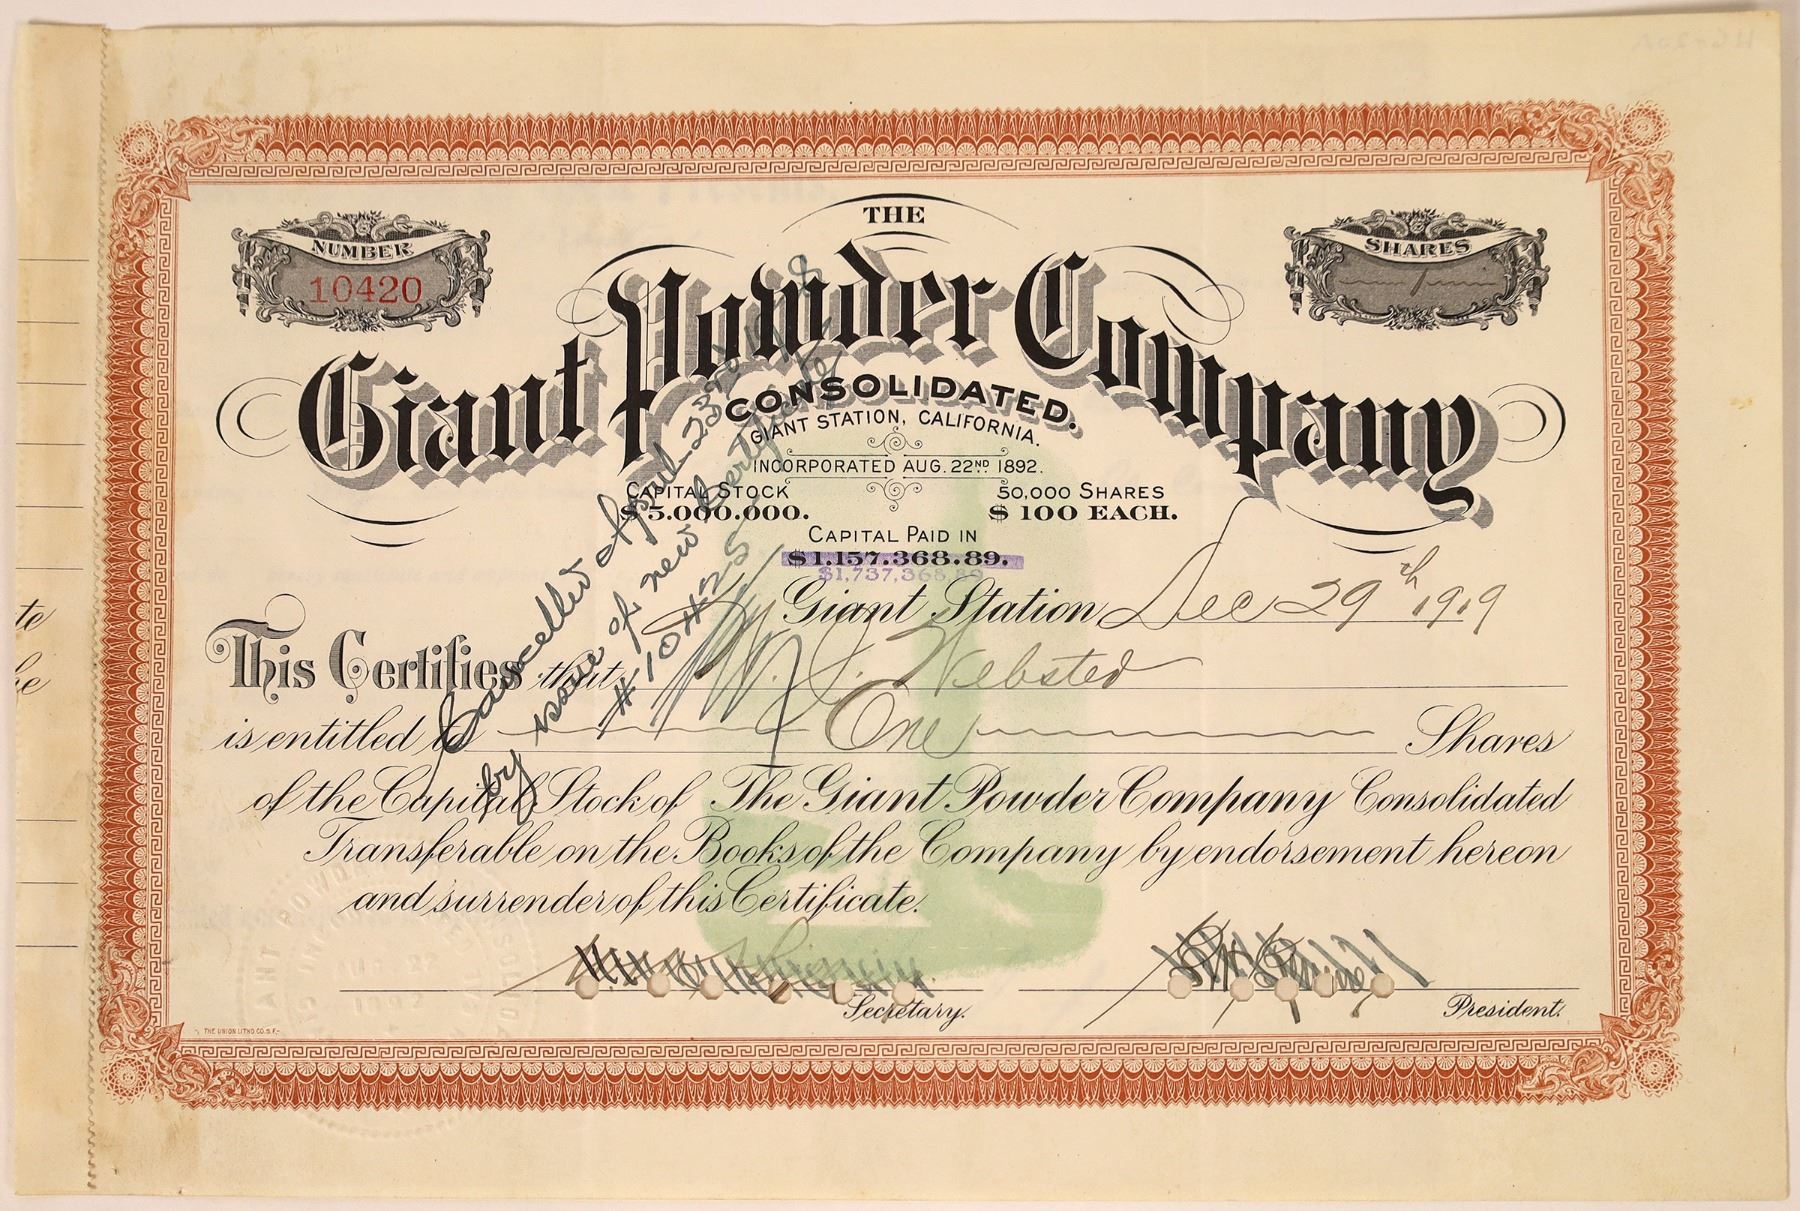 THE
NUMBER
10420
SHARES
1
Giant Powder Company
CONSOLIDATED.
GIANT STATION, CALIFORNIA.
INCORPORATED AUG. 22ND 1892.
CAPITAL STOCK 50,000 SHARES
$5.000.000. $100 EACH.
CAPITAL PAID IN
$1.157.368.89.
$1,737,368.89
Giant Station Dec 29th 1919
This Certifies that W. J. Webster
is entitled to One Shares
of the Capital Stock of The Giant Powder Company Consolidated
Transferable on the Books of the Company by endorsement hereon
and surrender of this Certificate.
Cancelled April 23rd
by issue of new Certificate
Secretary.
President.
THE UNION LITHO. CO. S.F.
GIANT POWDER
AUG 22
1892
te
he